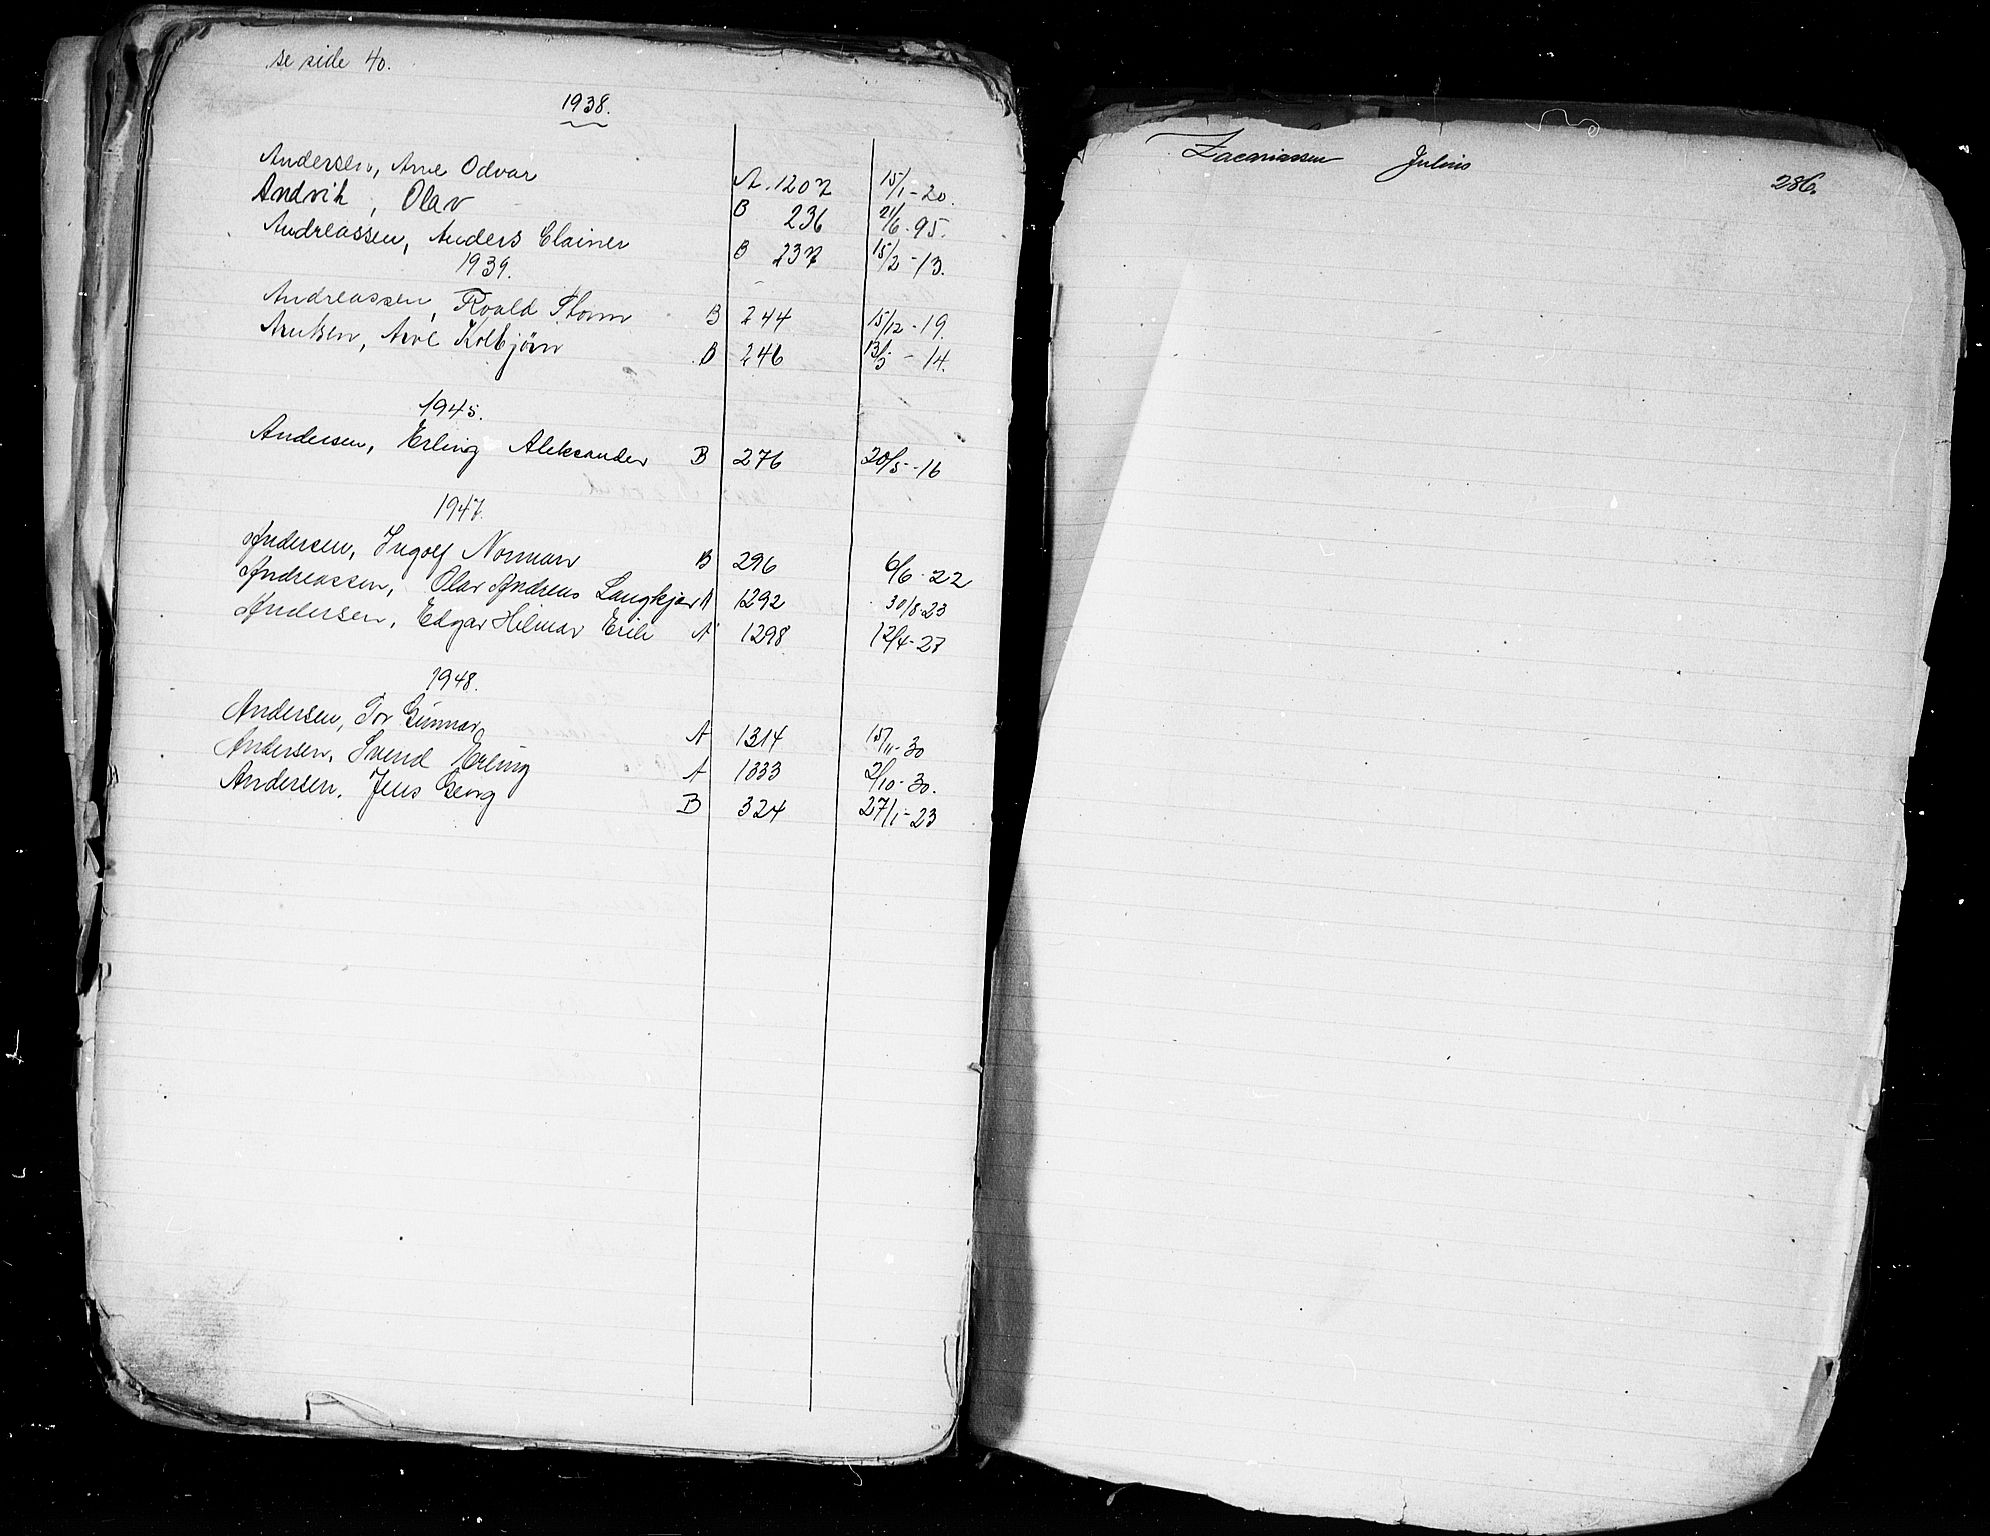 se side 40.
1938.
Andersen, Arne Odvar A. 1207 15/1-20.
Andvik, Olav B 236 21/6-95.
Andreassen, Anders Clainer B 237 15/2-13.
1939.
Andreassen, Roald Thorn B 244 15/12-19.
Arntsen, Arve Kolbjørn B 246 13/5-14.
1945.
Andersen, Erling Aleksander B 276 20/5-16
1947.
Andersen, Ingolf Norman B 296 6/6-22
Andreassen, Olav Andreas Langkjær A 1292 30/8-23
Andersen, Edgar Hilmar Erik A 1298 12/4-27
1948.
Andersen, Tor Gunnar A 1314 15/11-30
Andersen, Svend Erling A 1333 2/10-30.
Andersen, Jens Georg B 324 27/1-23
Zacariassen Julius 286.